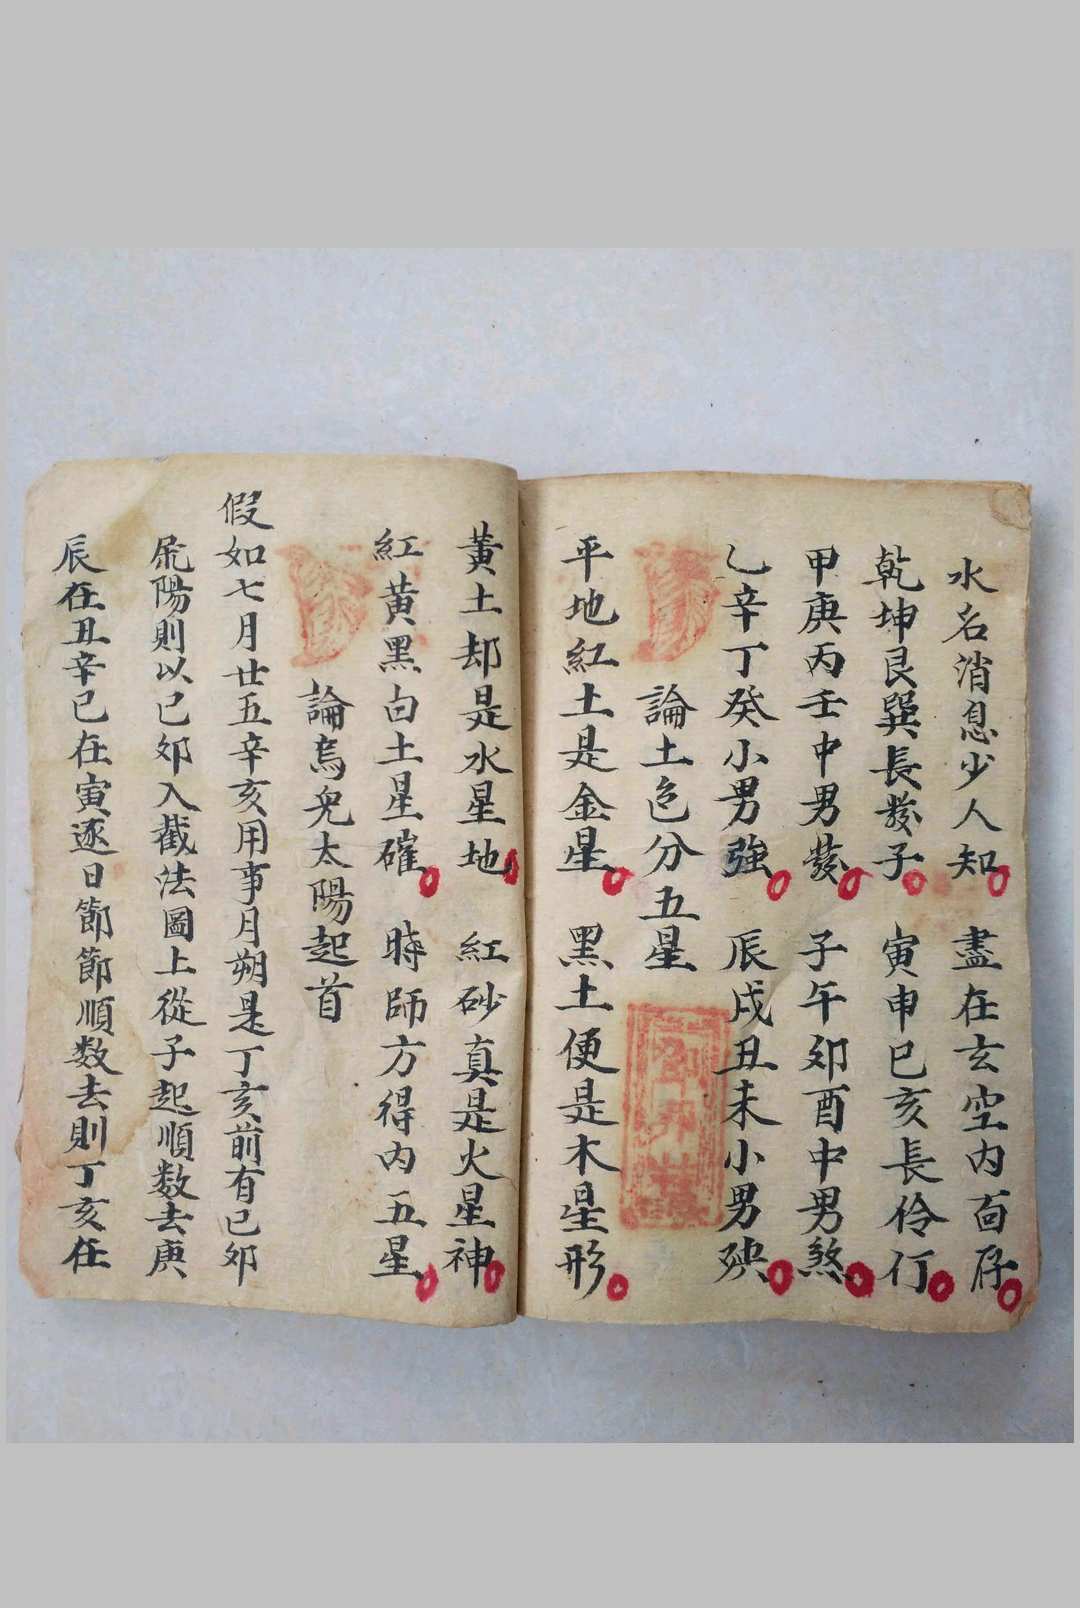 水名消息少人知 盡在玄空内面存
乾坤艮巽長發子 寅申巳亥長伶仃
甲庚丙壬中男發 子午卯酉中男煞
乙辛丁癸小男強 辰戌丑未小男殃
論土色分五星
平地紅土是金星 黑土便是木星形
黃土却是水星地 紅砂真是火星神
紅黃黑白土星確 時師方得内五星
論烏兔太陽起首
假如七月廿五辛亥用事月朔是丁亥前有己卯
陽則以己卯入截法圖上從子起順数去庚
辰在丑辛巳在寅逐日節節順数去則丁亥在